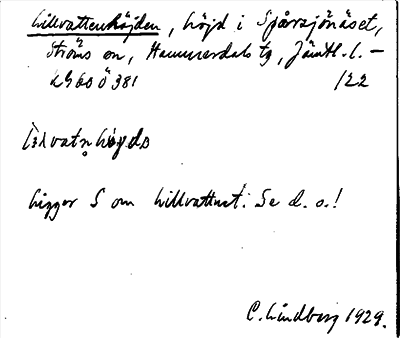 Lillvattenhöjden, höjd i Spårsjönäset,
Ströms sn, Hammerdals tg, Jämtl. l. –
LG 60 Ö 381 122
høyda
Ligger S om Lillvattnet. Se d. o.!
C. Lindberg 1929.